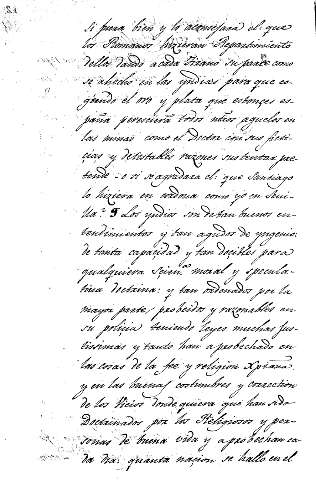 si fuera bien y lo aconsejara el: que
los Romanos hizieran Repartimiento
della dando a cada tirano su parte como
se ahecho en las yndias para que co
giendo el oro y plata que estonçes es
paña perescieran todos ntros aguelos en
las minas como el Doctor con sus ficti
cias y detestables razones sustentar pre
tende o si se agradara el: que Santiago
lo hiziera en
¶ Los yndios son de tan buenos en
tendimientos y tan agudos de yngenio:
de tanta capacidad y tan dociles para
qualquiera moral y specula
tiua doctrina: y tan ordenados por la
mayor parte, probeidos y razonables en
su policia teniendo leyes muchas jus
tissimas y tanto han aprobechado en
las cosas de la fee y religion xpiana
y en las buenas costumbres y correction
de los Vicios donde quiera que han sido
Doctrinados por los Religiosos y per
sonas de buena vida y aprobechan ca
da dia: quanta naçion se hallo en el